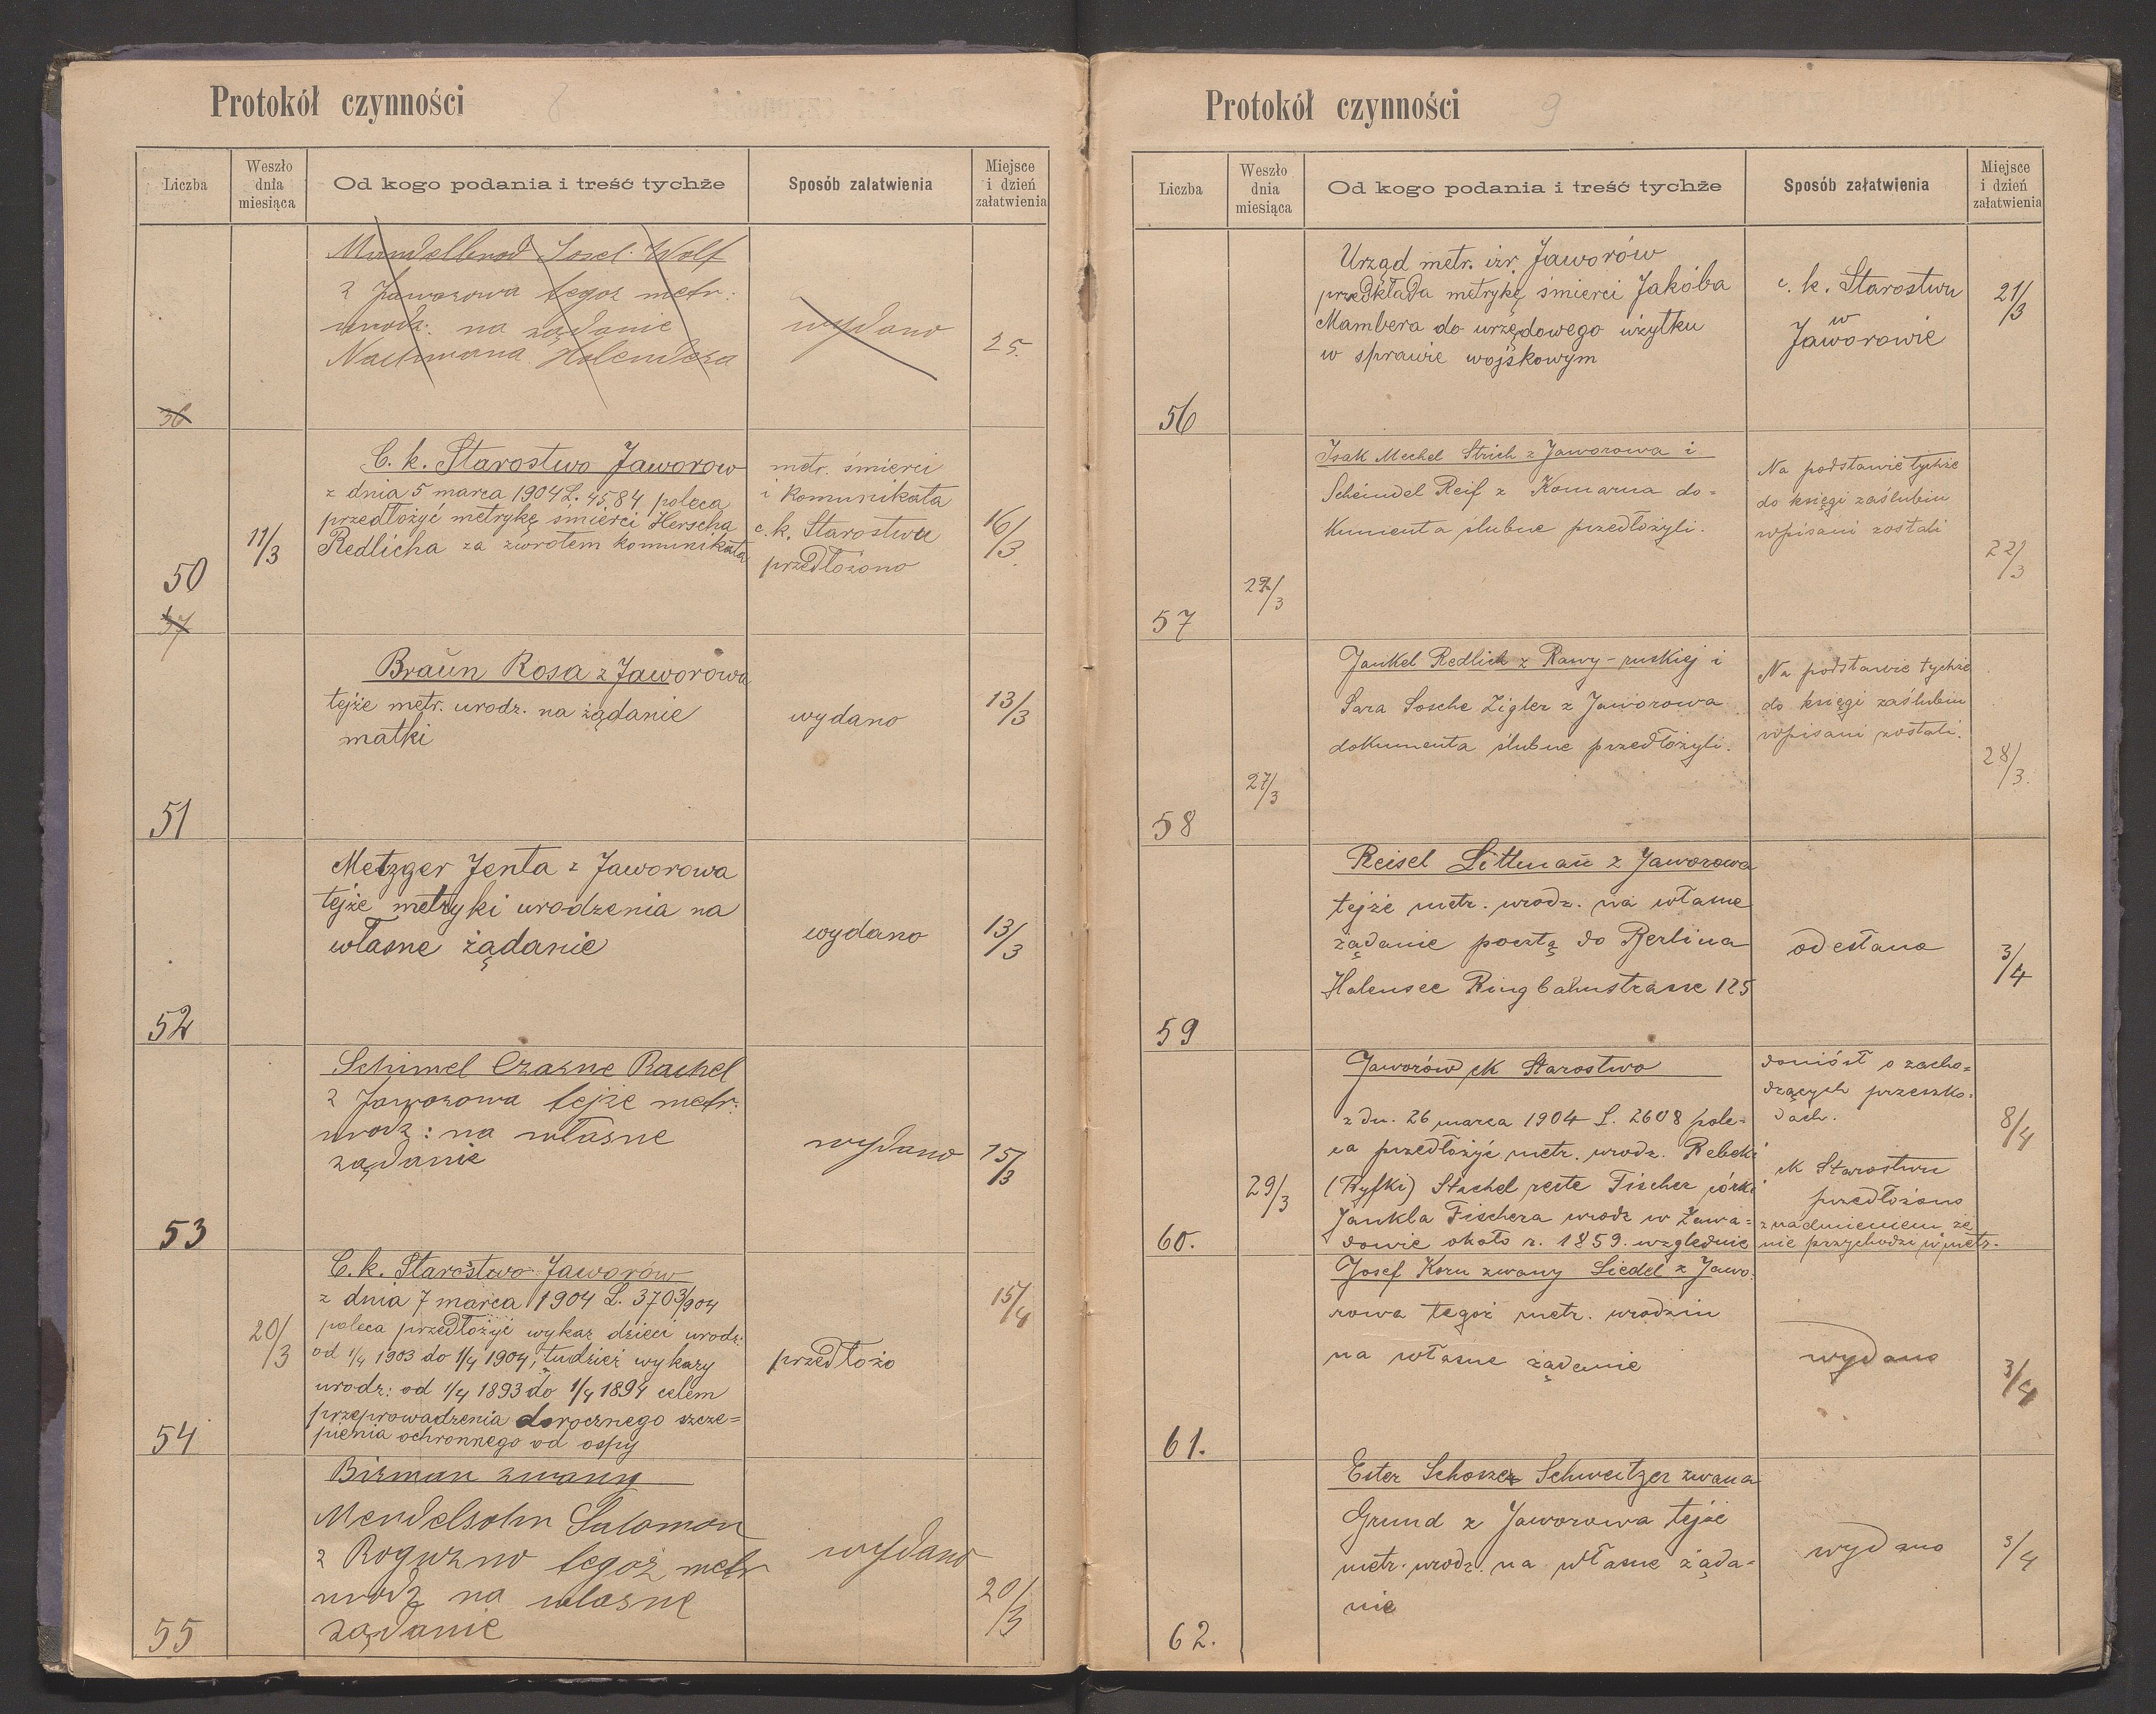 Protokół czynności
8
Liczba
Weszło dnia miesiąca
Od kogo podania i treść tychże
Sposób załatwienia
Miejsce i dzień załatwienia
Mandelbrod Josel Wolf
z Jaworowa tegoż metr.
urodz. na żądanie
Nachmana Holendera
wydano
25.
36
C. k. Starostwo Jaworow
z dnia 5 marca 1904 L. 4584 poleca
przedłożyć metrykę śmierci Herscha
Redlicha za zwrotem komunikata
metr. śmierci
i komunikata
c. k. Starostwu
przedłożono
11/3
16/3
50
37
Braŭn Rosa z Jaworowa
tejże metr. urodz. na żądanie
matki
wydano
13/3
51
Metzger Jenta z Jaworowa
tejże metryki urodzenia na
własne żądanie
wydano
13/3
52
Schimel Czarne Rachel
z Jaworowa tejże metr:
urodz: na własne
żądanie
wydano
15/3
53
C. k. Starostwo Jaworów
z dnia 7 marca 1904 L. 3703/904
poleca przedłożyć wykaz dzieci urodz:
od 1/4 1903 do 1/4 1904, tudzież wykazy
urodz: od 1/4 1893 do 1/4 1894 celem
przeprowadzenia dorocznego szcze=
pienia ochronnego od ospy
20/3
przedłożo
15/4
54
Birman zwany
Mendelsohn Salomon
z Roguzno tegoż metr
urodz na własne
żądanie
wydano
20/3
55
Protokół czynności
9
Liczba
Weszło dnia miesiąca
Od kogo podania i treść tychże
Sposób załatwienia
Miejsce i dzień załatwienia
Urząd metr. izr. Jaworów
przedkłada metrykę śmierci Jakóba
Mambera do urzędowego użytku
w sprawie wojskowym
c. k. Starostwu
w
Jaworowie
21/3
56
Isak Mechel Strich z Jaworowa i
Scheindel Reif z Komarna do=
kumenta ślubne przedłożyli.
Na podstawie tychże
do księgi zaślubin
wpisani zostali
22/3
22/3
57
Jankel Redlich z Rawy-ruskiej i
Sara Sosche Zigler z Jaworowa
dokumenta ślubne przedłożyli.
Na podstawie tychże
do księgi zaślubin
wpisani zostali.
27/3
28/3.
58
Reisel Littmañ z Jaworowa
tejże metr. urodz. na własne
żądanie pocztą do Berlina
Halensee Ringbahnstrasse 125
odesłano
3/4
59
Jaworów ck Starostwo
z dn. 26 marca 1904 L. 2608 pole-
ca przedłożyć metr. urodz. Rebeki
(Ryfki) Stachel recte Fischer córki
Jankla Fischera urodz w Zawa=
dowie około r. 1859. względnie
doniósł o zacho=
dzących przeszko=
dach.
ck Starostwu
przedłożono
z nadmieniem że
nie przychodzi w metr.
29/3
8/4
60.
Josef Korn zwany Liedel z Jawo.
rowa tegoż metr. urodzin
na własne żądanie
wydano
3/4
61.
Ester Schosze Schweitzer zwana
Grund z Jaworowa tejże
metr. urodz. na własne żąda=
nie
wydano
3/4
62.